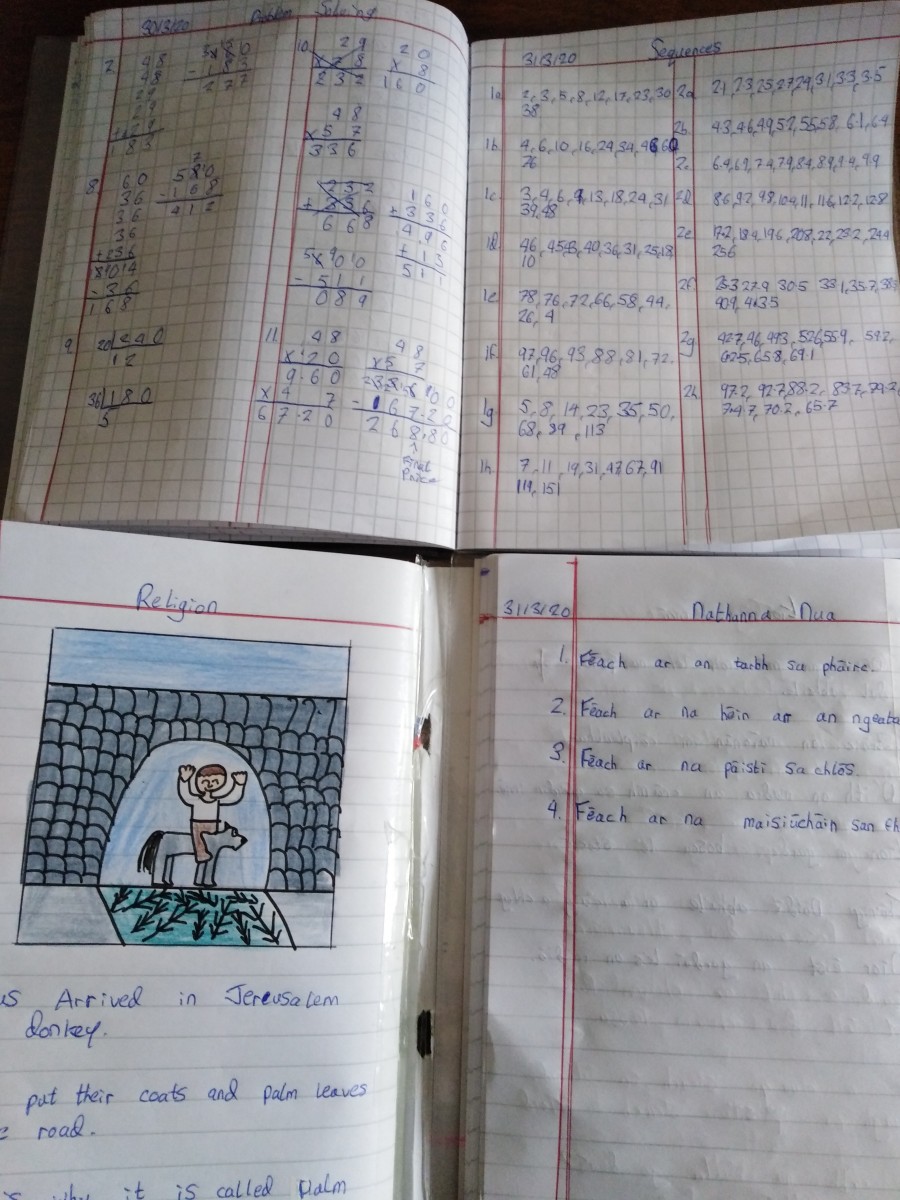 30/3/20 Problem Solving
7. 48
48
183
277
10. 29
x 8
232
20
x 8
160
48
x5 7
336
8. 60
36
36
36
+ 236
- 36
168
580
- 168
412
232
+ 336
668
160
+ 336
496
+ 13
511
- 511
089
9. 20 240
12
36 180
5
11. 48
x 20
9.60
x 7
67.20
48
x5 7
- 167.20
268.80
Final
Price
31/3/20 Sequences
1a 2, 3, 5, 8, 12, 17, 23, 30
38
1b 4, 6, 10, 16, 24, 34, 46, 60
76
1c 3, 4, 6, 9, 13, 18, 24, 31
39, 48
1d 46, 45, 43, 40, 36, 31, 25, 18
10
1e 78, 76, 72, 66, 58, 44,
26, 4
1f 97, 96, 93, 88, 81, 72,
61, 48
1g 5, 8, 14, 23, 35, 50,
68, 89, 113
1h 7, 11, 19, 31, 47, 67, 91
119, 151
2a 21, 23, 25, 27, 29, 31, 33, 35
2b 43, 46, 49, 52, 55, 58, 6.1, 6.4
2c 6.4, 6.9, 7.4, 7.9, 8.4, 8.9, 9.4, 9.9
2d 86, 92, 98, 104, 11, 116, 122, 128
2e 172, 184, 196, 208, 22, 232, 244
256
2f 25.3 27.9 30.5 33.1, 35.7, 38.3
40.9, 43.5
2g 42.7, 46, 49.3, 52.6, 55.9, 59.2,
62.5, 65.8, 69.1
2h 97.2, 92.7, 88.2, 83.7, 79.2,
74.7, 70.2, 65.7
Religion
us Arrived in Jereusalem
donkey.
put their coats and palm leaves
road.
why it is called Palm
31/3/20 Nathanna Nua
1. Féach ar an tarbh sa pháirc.
2. Féach ar na háin arr an ngeata
3. Féach ar na páistí sa chlós.
4. Féach ar na maisiúcháin san